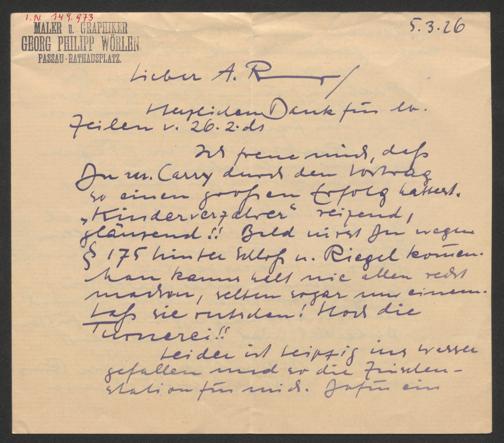 I.N 149.973
MALER u. GRAPHIKER
GEORG PHILIPP WÖRLEN
PASSAU - RATHAUSPLATZ.
5.3.26
Lieber A. R
Herzlichen Dank für lb.
Zeilen v. 26.2. ds
Ich freue mich, daß
Du u. Carry durch den Vortrag
so einen großen Erfolg hattest.
„Kinderverzahrer“ reizend,
glänzend!! Bald wirst Du wegen
§ 175 hinter Schloß u. Riegel kommen.
Man kanns halt nie allen recht
machen, selten sogar nur einem.
Laß sie rutschen! Hoch die
Turnerei!!
Leider ist Leipzig ins Wasser
gefallen und so die Zwischen-
station für mich. Dafür ein